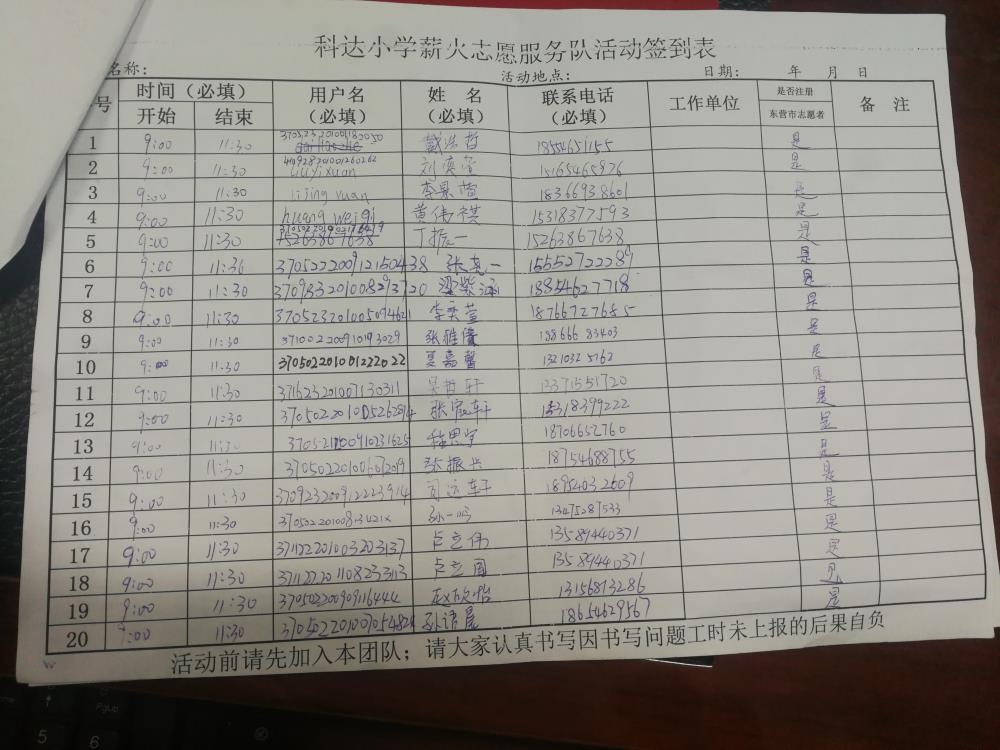 科达小学薪火志愿服务队活动签到表
名称： 活动地点： 日期： 年 月 日
号 时间（必填） 用户名（必填） 姓 名（必填） 联系电话（必填） 工作单位 是否注册 东营市志愿者 备 注
开始 结束
1 9:00 11:30 戴浩哲 是
2 9:00 11:30 liuyixuan 15165465976 是
3 9:00 11:30 lijing yuan 18366938601 是
4 9:00 11:30 huang weiqi 黄伟祺 15318377593 是
5 9:00 11:30 丁振一 15263867638 是
6 9:00 11:36 370522200912150438 15552722289 是
7 9:00 11:30 370983201008293720 梁紫涵 18854627718 是
8 9:00 11:30 370523201005094621 李奕萱 18766727685 是
9 9:00 11:30 371002200910193029 张雅 是
10 9:00 11:30 370502201001222022 嘉馨 是
11 9:00 11:30 371623201007130311 吴哲轩 13371551720 是
12 9:00 11:30 张宸轩 是
13 9:00 11:30 程思宇 18706652760 是
14 9:00 11:30 张振兴 18754688755 是
15 9:00 11:30 370923200912223914 司运轩 是
16 9:00 11:30 37050220100813421X 孙一鸣 13475287533 是
17 9:00 11:30 371122201003203137 卢立伟 13589440371 是
18 9:00 11:30 371122201108233113 卢立国 13589440371
19 9:00 11:30 370502200909116444 赵欣怡 13156813286 是
20 9:00 11:30 18654629567
活动前请先加入本团队；请大家认真书写因书写问题工时未上报的后果自负